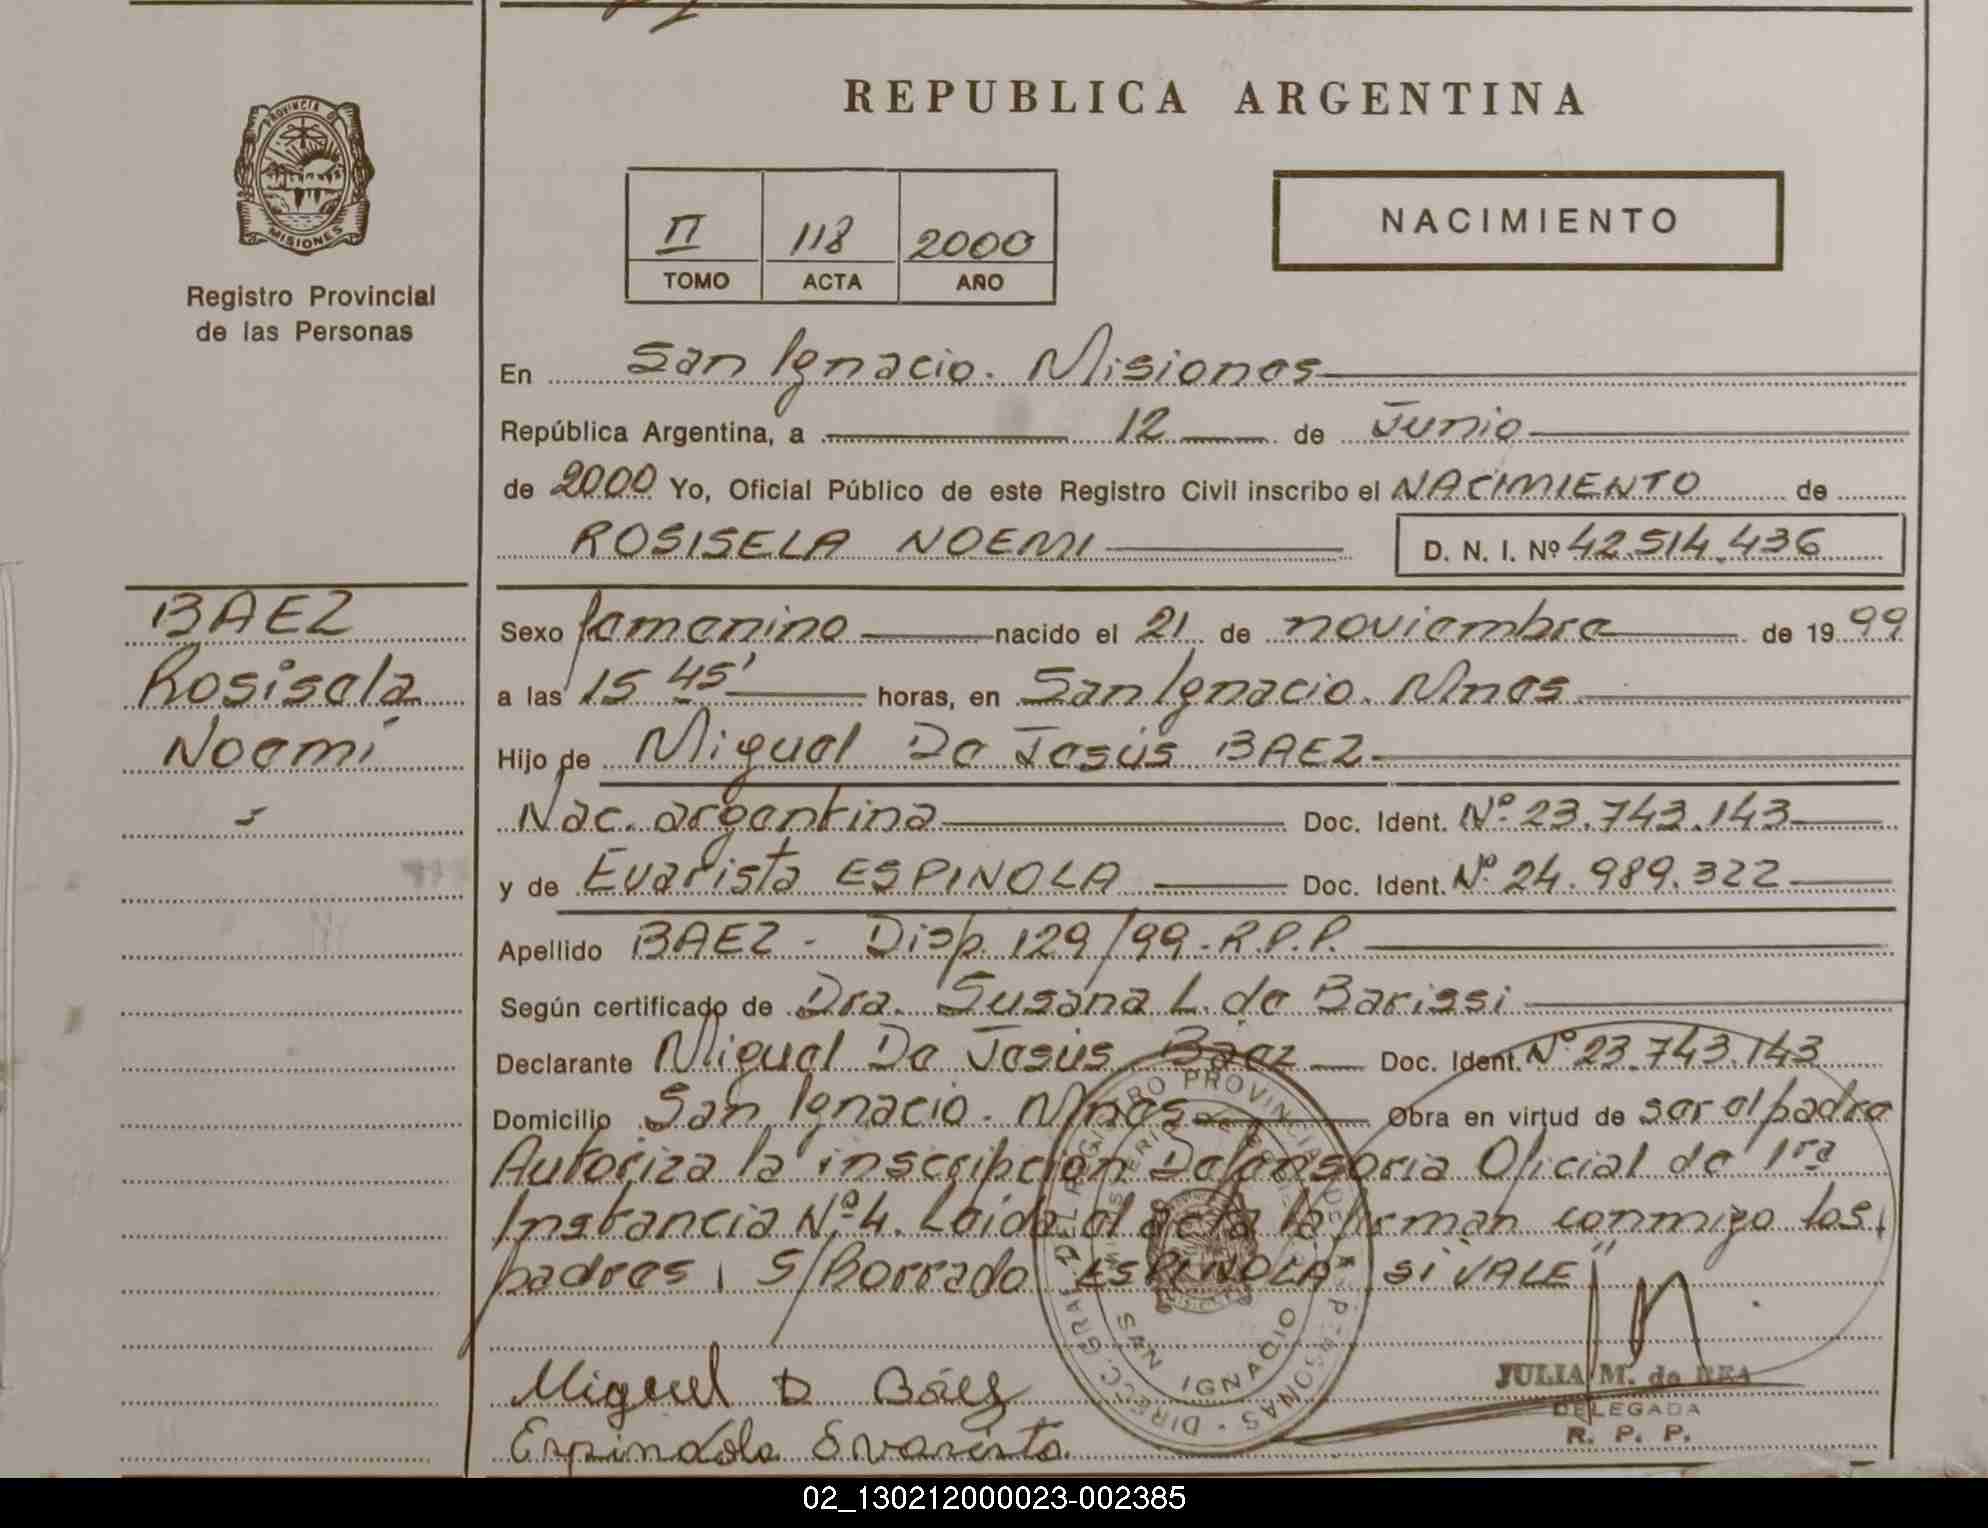 REPUBLICA ARGENTINA
PROVINCIA DE
MISIONES
Registro Provincial
de las Personas
II 118 2000
TOMO ACTA AÑO
NACIMIENTO
En San Ignacio. Misiones
República Argentina, a 12 de Junio
de 2000 Yo, Oficial Público de este Registro Civil inscribo el NACIMIENTO de
ROSISELA NOEMI D. N. I. Nº 42.514.436
BAEZ
Rosisela
Noemí
Sexo femenino nacido el 21 de noviembre de 19 99
a las 15 45' horas, en San Ignacio. Mnes
Hijo de Miguel De Jesús BAEZ
Nac. argentina Doc. Ident. Nº 23.743.143
y de Evarista ESPINOLA Doc. Ident. Nº 24.989.322
Apellido BAEZ - Disp. 129/99 - R.P.P.
Según certificado de Dra. Susana L. de Barissi
Declarante Miguel De Jesús Báez Doc. Ident. Nº 23.743.143
Domicilio San Ignacio - Mnes Obra en virtud de ser el padre
Autoriza la inscripción Defensoria Oficial de 1ra
Instancia Nº 4. Leída el acta la firman conmigo los
padres, S/Borrado "ESPINOLA" si VALE"
Miguel D Báez
Espindola Evarista
DIRECC. GRAL. DEL REGISTRO PROVINCIAL DE LAS PERSONAS
SAN IGNACIO
JULIA M. de REA
DELEGADA
R. P. P.
02_130212000023-002385